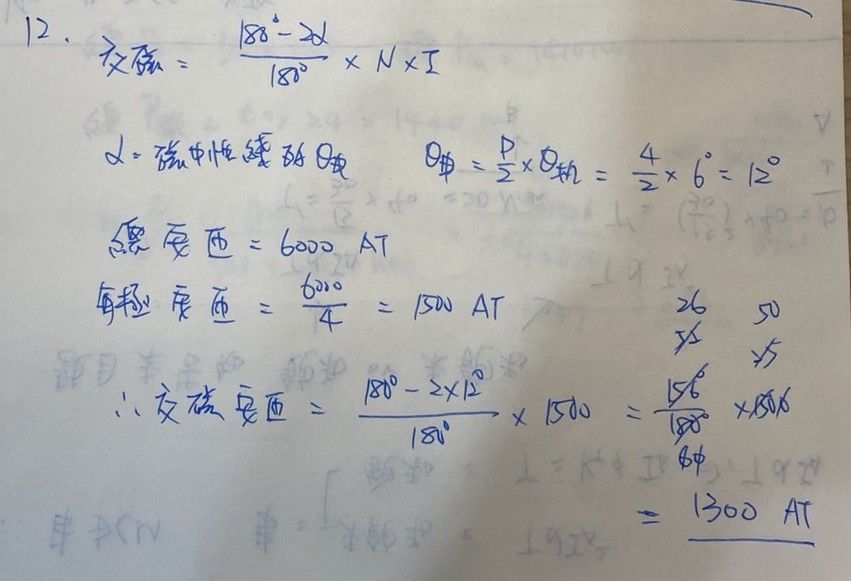 12. 交磁 = (180° - 2α)/180° × N × I
α = 磁中性線的θ電 θ電 = P/2 × θ機 = 4/2 × 6° = 12°
總安匝 = 6000 AT
每極安匝 = 6000/4 = 1500 AT
26 50
52 75
∴ 交磁安匝 = (180° - 2×12°)/180° × 1500 = 156°/180° × 1500
= 1300 AT